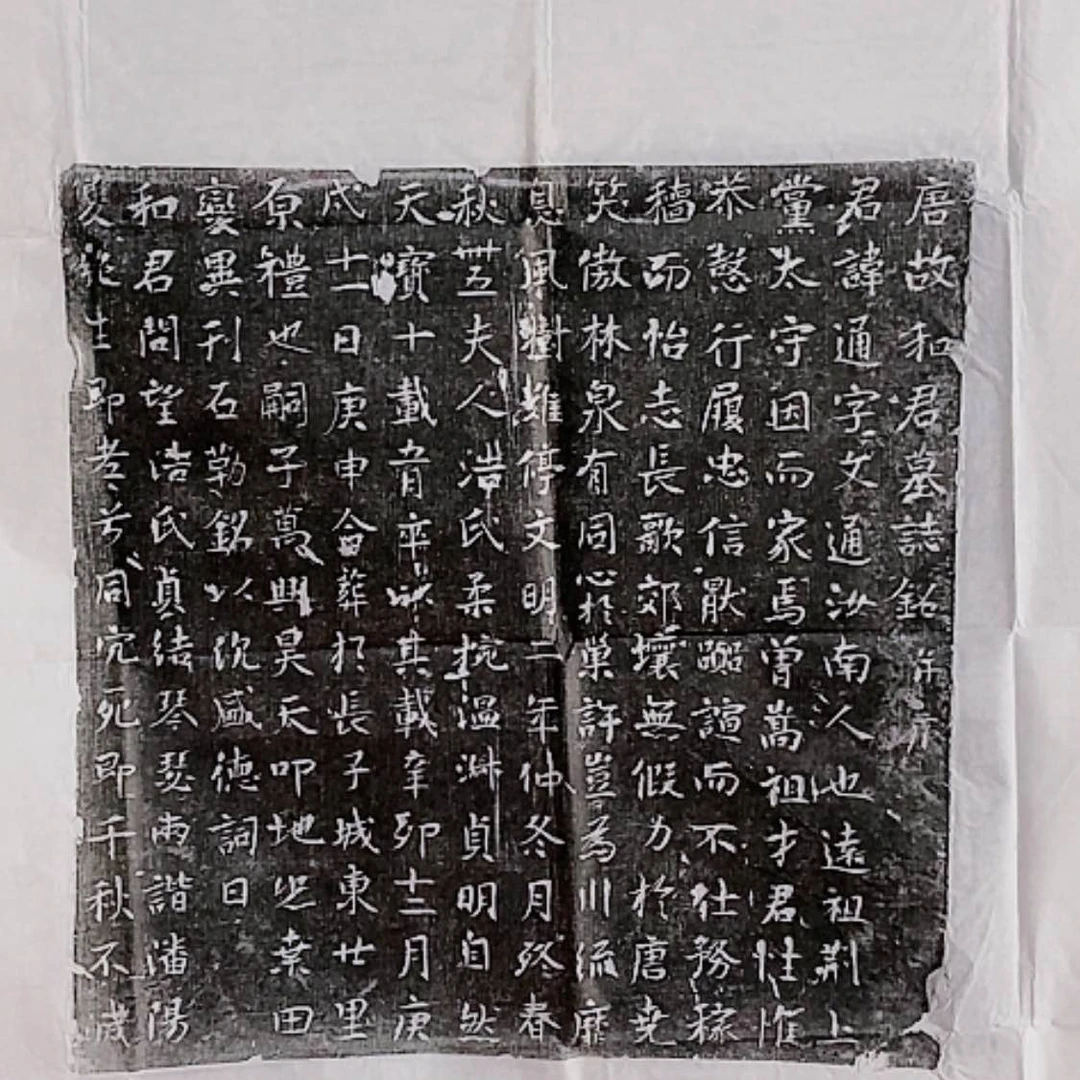 唐故和君墓誌銘并序
君諱通字文通汝南人也遠祖荆上
黨太守因而家焉曾高祖才君性惟
恭慤行履忠信猒躁諠而不仕務稼
穡而怡志長歌郊壤無假力於唐堯
笑傲林泉有同心於巢許豈為川流靡
息風樹難停文明二年仲冬月終春
秋卌五夫人浩氏柔婉温淋貞明自然
天寶十載育卒以其載辛卯十二月庚
戌十一日庚申合葬於長子城東廿里
原禮也嗣子萬興昊天叩地恐桒田
變異刊石勒銘以紀盛德詞曰
和君問望浩氏貞結琴瑟雨諧潘陽
生即孝兮同穴死即千秋不